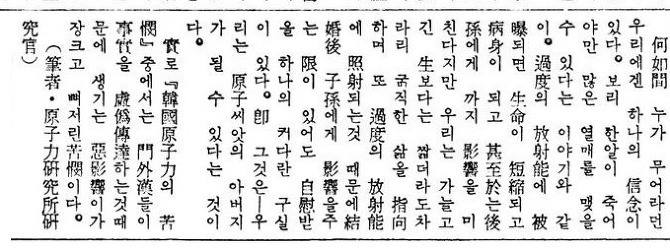 何如間 누가 무어라던
우리에겐 하나의 信念이
있다。보리 한알이 죽어
야만 많은 열매를 맺을
수 있다는 이야기와 같
이。過度의 放射能에 被
曝되면 生命이 短縮되고
病身이 되고 甚至於는後
孫에게 까지 影響을 미
친다지만 우리는 가늘고
긴 生보다는 짧더라도차
라리 굵직한 삶을 指向
하며 또 過度의 放射能
에 照射되는것 때문에結
婚後 子孫에게 影響을주
는 限이 있어도 自慰받
을 하나의 커다란 구실
이 있다。卽 그것은──우
리는 原子씨앗의 아버지
가 될 수 있다는 것이
다。
實로『韓國原子力의 苦
憫』중에서는 門外漢들이
事實을 虛僞傳達하는것때
문에 생기는 惡影響이가
장크고 뼈저린苦憫이다。
(筆者・原子力硏究所硏
究官)